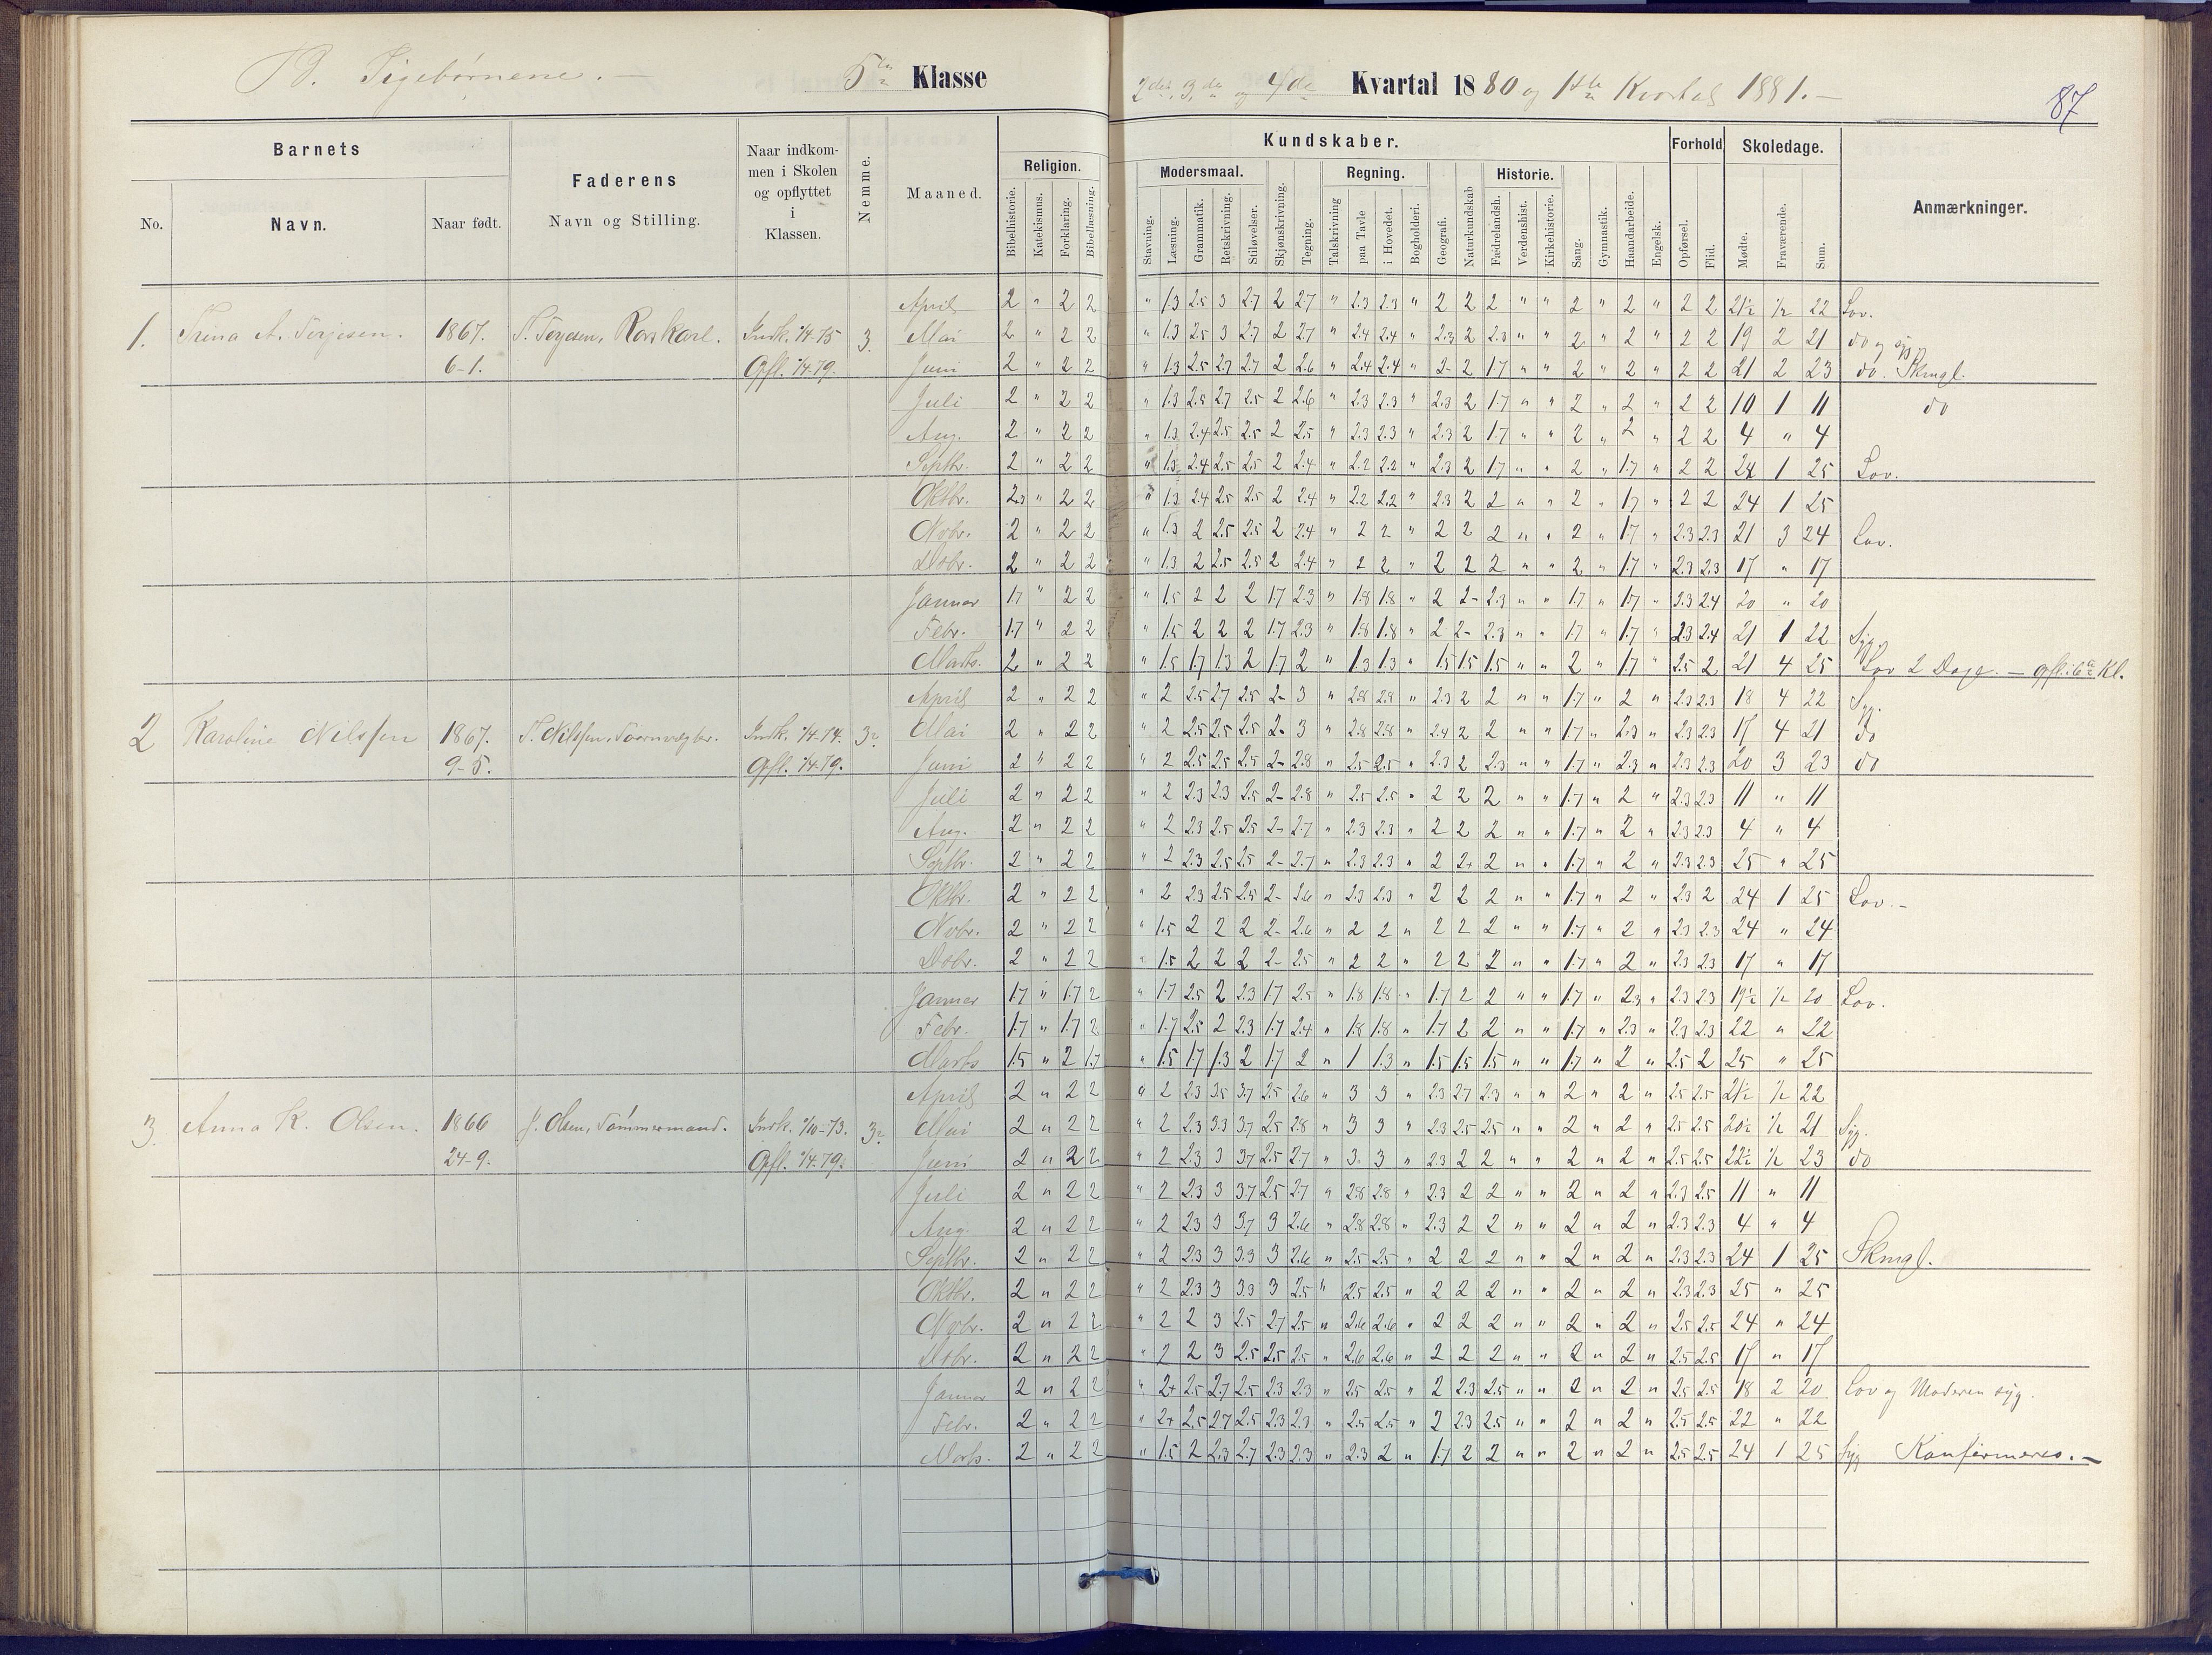 B. Pigebørnene. —
5te Klasse
2det, 3die og 4de Kvartal 1880 og 1ste Kvartal 1881. —
87
Barnets
No.
Navn.
Naar født.
Faderens
Navn og Stilling.
Naar indkom-
men i Skolen
og opflyttet
i
Klassen.
Nemme.
Maaned.
Kundskaber.
Religion.
Bibelhistorie.
Katekismus.
Forklaring.
Bibellæsning.
Modersmaal.
Stavning.
Læsning.
Grammatik.
Retskrivning.
Stiløvelser.
Skjønskrivning.
Tegning.
Regning.
Talskrivning
paa Tavle
i Hovedet.
Bogholderi.
Geografi.
Naturkundskab
Historie.
Fædrelandsh.
Verdenshist.
Kirkehistorie.
Sang.
Gymnastik.
Haandarbeide.
Engelsk.
Forhold
Opførsel.
Flid.
Skoledage.
Mødte.
Fraværende.
Sum.
Anmærkninger.
April 2 " 2 2 " 1.3 2.5 3 2.7 2 2.7 " 2.3 2.3 " 2 2 2 " " 2 " 2 " 2 2 21½ ½ 22 Lov.
1. Trina A. Terjesen. 1867. T. Terjesen, Rorskarl. Indk. 1/4-75 3. Mai 2 " 2 2 " 1.3 2.5 3 2.7 2 2.7 " 2.4 2.4 " 2.3 2 2.3 " " 2 " 2 " 2 2 19 2 21 do og syg
6-1. Opfl. 1/4-79. Juni 2 " 2 2 " 1.3 2.5 2.7 2.7 2 2.6 " 2.4 2.4 " 2- 2 1.7 " " 2 " 2 " 2 2 21 2 23 do. Skmgl.
Juli 2 " 2 2 " 1.3 2.5 2.7 2.5 2 2.6 " 2.3 2.3 " 2.3 2 1.7 " " 2 " 2 " 2 2 10 1 11 do
Aug. 2 " 2 2 " 1.3 2.4 2.5 2.5 2 2.5 " 2.3 2.3 " 2.3 2 1.7 " " 2 " 2 " 2 2 4 " 4
Septbr. 2 " 2 2 " 1.3 2.4 2.5 2.5 2 2.4 " 2.2 2.2 " 2.3 2 1.7 " " 2 " 1.7 " 2 2 24 1 25 Lov.
Oktbr. 2.3 " 2 2 " 1.3 2.4 2.5 2.5 2 2.4 " 2.2 2.2 " 2.3 2 2 " " 2 " 1.7 " 2 2 24 1 25
Novbr. 2 " 2 2 " 1.3 2 2.5 2.5 2 2.4 " 2 2 " 2 2 2 " " 2 " 1.7 " 2.3 2.3 21 3 24 Lov.
Decbr. 2 " 2 2 " 1.3 2 2.5 2.5 2 2.4 " 2 2 " 2 2 2 " " 2 " 1.7 " 2.3 2.3 17 " 17
Januar 1.7 " 2 2 " 1.5 2 2 2 1.7 2.3 " 1.8 1.8 " 2 2- 2.3 " " 1.7 " 1.7 " 2.3 2.4 20 " 20
Febr. 1.7 " 2 2 " 1.5 2 2 2 1.7 2.3 " 1.8 1.8 " 2 2- 2.3 " " 1.7 " 1.7 " 2.3 2.4 21 1 22 Syg
Marts. 2 " 2 2 " 1.5 1.7 1.3 2 1.7 2 " 1.3 1.3 " 1.5 1.5 1.5 " " 2 " 1.7 " 2.5 2 21 4 25 Lov 2 Dage. — opfl. i 6te Kl.
April 2 " 2 2 " 2 2.5 2.7 2.5 2- 3 " 2.8 2.8 " 2.3 2 2 " " 1.7 " 2 " 2.3 2.3 18 4 22 Syg.
2 Karoline Nilssen 1867. T. Nilssen, Indk. 1/4-74. 3. Mai 2 " 2 2 " 2 2.5 2.5 2.5 2- 3 " 2.8 2.8 " 2.4 2 2 " " 1.7 " 2.3 " 2.3 2.3 17 4 21 do
9-5. Opfl. 1/4-79. Juni 2 " 2 2 " 2 2.5 2.5 2.5 2- 2.8 " 2.5 2.5 " 2.3 2 2.3 " " 1.7 " 2.3 " 2.3 2.3 20 3 23 do
Juli 2 " 2 2 " 2 2.3 2.3 2.5 2- 2.8 " 2.5 2.5 " 2 2 2 " " 1.7 " 2 " 2.3 2.3 11 " 11
Aug. 2 " 2 2 " 2 2.3 2.5 2.5 2- 2.7 " 2.3 2.3 " 2 2 2 " " 1.7 " 2 " 2.3 2.3 4 " 4
Septbr. 2 " 2 2 " 2 2.3 2.5 2.5 2- 2.7 " 2.3 2.3 " 2 2+ 2 " " 1.7 " 2 " 2.3 2.3 25 " 25
Oktbr. 2 " 2 2 " 2 2.3 2.5 2.5 2- 2.6 " 2.3 2.3 " 2 2 2 " " 1.7 " 2 " 2.3 2 24 1 25 Lov. -
Novbr. 2 " 2 2 " 1.5 2 2 2 2- 2.6 " 2 2 " 2 2 2 " " 1.7 " 2 " 2.3 2.3 24 " 24
Decbr. 2 " 2 2 " 1.5 2 2 2 2- 2.5 " 2 2 " 2 2 2 " " 1.7 " 2 " 2.3 2.3 17 " 17
Januar 1.7 " 1.7 2 " 1.7 2.5 2 2.3 1.7 2.5 " 1.8 1.8 " 1.7 2 2 " " 1.7 " 2.3 " 2.3 2.3 19½ ½ 20 Lov.
Febr. 1.7 " 1.7 2 " 1.7 2.5 2 2.3 1.7 2.4 " 1.8 1.8 " 1.7 2 2 " " 1.7 " 2.3 " 2.3 2.3 22 " 22
Marts 1.5 " 2 1.7 " 1.5 1.7 1.3 2 1.7 2 " 1 1.3 " 1.5 1.5 1.5 " " 1.7 " 2 " 2.5 2 25 " 25
April 2 " 2 2 " 2 2.3 3.5 3.7 2.5 2.6 " 3 3 " 2.3 2.7 2.3 " " 2 " 2 " 2.5 2.5 21½ ½ 22
3. Anna K. Olsen. 1866 J. Olsen, Tømmermand. Indk. 1/10-73. 3. Mai 2 " 2 2 " 2 2.3 3.3 3.7 2.5 2.8 " 3 3 " 2.3 2.5 2.5 " " 2 " 2 " 2.5 2.5 20½ ½ 21 Syg.
24-9. Opfl. 1/4-79. Juni 2 " 2 2 " 2 2.3 3 3.7 2.5 2.7 " 3 3 " 2.3 2 2 " " 2 " 2 " 2.5 2.5 22½ ½ 23 do
Juli 2 " 2 2 " 2 2.3 3 3.7 2.5 2.7 " 2.8 2.8 " 2.3 2 2 " " 2 " 2 " 2.3 2.5 11 " 11
Aug. 2 " 2 2 " 2 2.3 3 3.7 3 2.6 " 2.8 2.8 " 2.3 2 2 " " 2 " 2 " 2.3 2.3 4 " 4
Septbr. 2 " 2 2 " 2 2.3 3 3.3 3 2.6 " 2.5 2.5 " 2 2 2 " " 2 " 2 " 2.3 2.3 24 1 25 Skmgl.
Oktbr. 2 " 2 2 " 2 2.3 3 3.3 3 2.5 " 2.5 2.5 " 2 2 2 " " 2 " 2 " 2.3 2.3 25 " 25
Novbr. 2 " 2 2 " 2 2 3 2.5 2.7 2.5 " 2.6 2.6 " 2 2 2 " " 2 " 2 " 2.5 2.5 24 " 24
Decbr. 2 " 2 2 " 2 2 3 2.5 2.5 2.5 " 2.6 2.6 " 2 2 2 " " 2 " 2 " 2.5 2.5 17 " 17
Januar 2 " 2 2 " 2+ 2.5 2.7 2.5 2.3 2.3 " 2.5 2.5 " 2 2.3 2.5 " " 2 " 2 " 2.5 2.5 18 2 20 Lov og Moderen syg.
Febr. 2 " 2 2 " 2+ 2.5 2.7 2.5 2.3 2.3 " 2.5 2.5 " 2 2.3 2.5 " " 2 " 2 " 2.5 2.5 22 " 22
Marts. 2 " 2 2 " 1.5 2 2.3 2.7 2.3 2.3 " 2.3 2 " 1.7 2 2 " " 2 " 2 " 2.5 2.5 24 1 25 Syg Konfirmeres. —